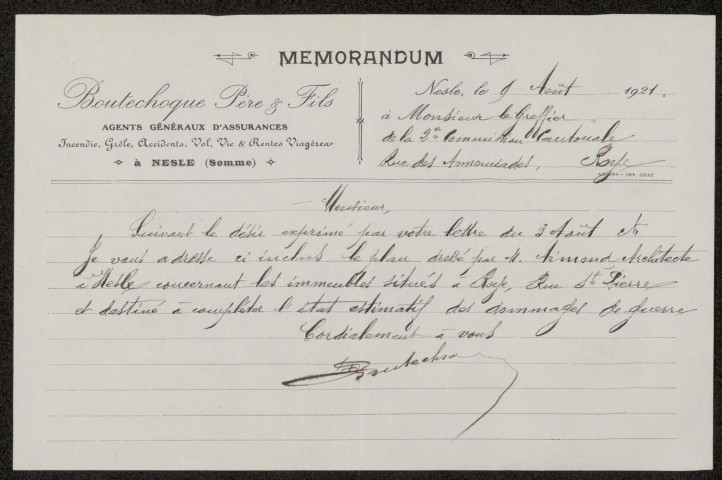 MEMORANDUM
Boutechoque Père & Fils
AGENTS GÉNÉRAUX D'ASSURANCES
Incendie, Grêle, Accidents, Vol, Vie & Rentes Viagères
à NESLE (Somme)
Nesle, le 9 Août 1921.
à Monsieur le Greffier
de la 2e Commission Cantonale
Rue des Roye
Monsieur,
Suivant le désir exprimé par votre lettre du 3 Août
Je vous adresse ci inclus le plan dressé par M. Armond Architecte
à Nesle concernant les immeubles situés à Roye, Rue St Pierre
et destiné à compléter l'état estimatif des dommages de guerre
Cordialement à vous